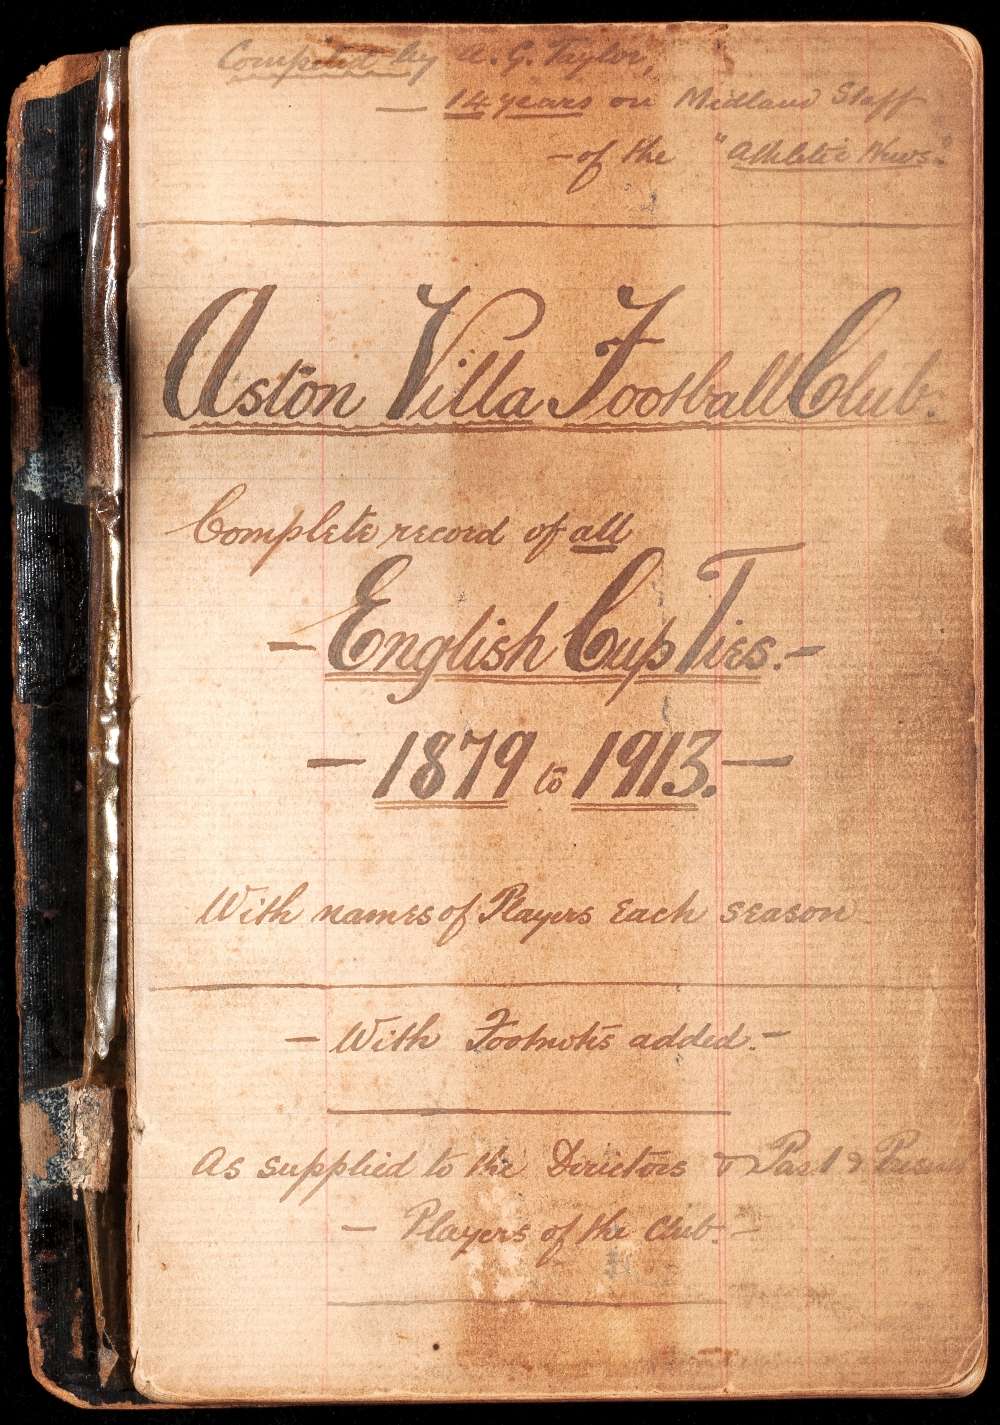 Compiled by A. G. Taylor,
— 14 years on Midland Staff
— of the "Athletic News".
Aston Villa Football Club.
Complete record of all
— English Cup Ties. —
— 1879 to 1913. —
With names of Players Each season
— With Footnotes added. —
As supplied to the Directors & Past & Present
— Players of the Club. —